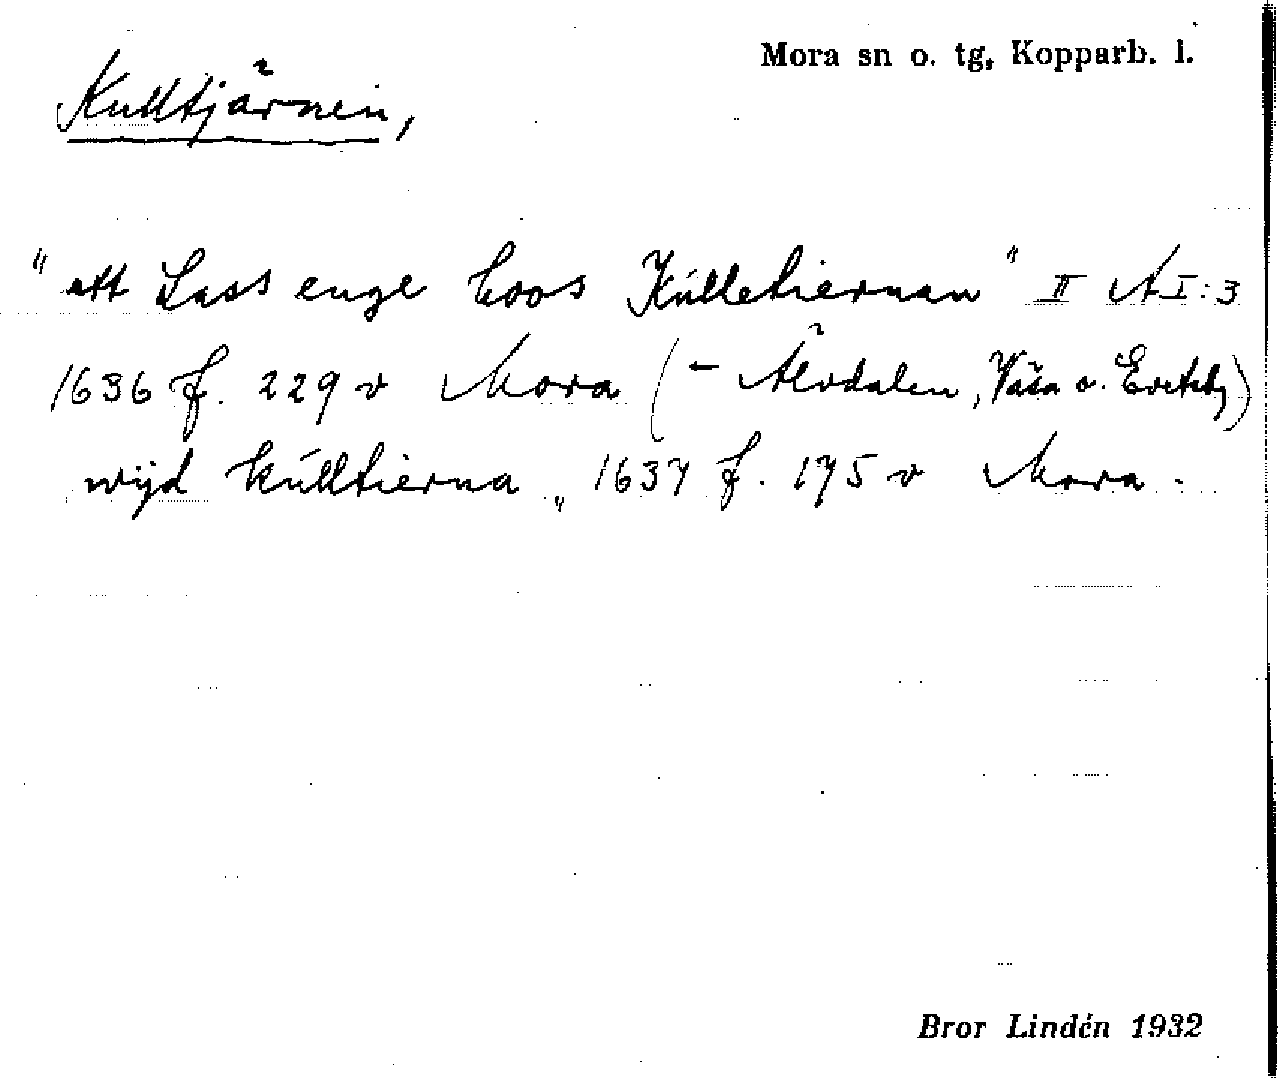 Mora sn o. tg, Kopparb. l.
Kulltjärnen,
"ett Lass enge hoos Kúlletiernan" II A I:3
1636 f. 229 v Mora (- Älvdalen, Våsa o. Evertsby)
wijd kúlltierna „ 1637 f. 175 v Mora.
Bror Lindén 1932